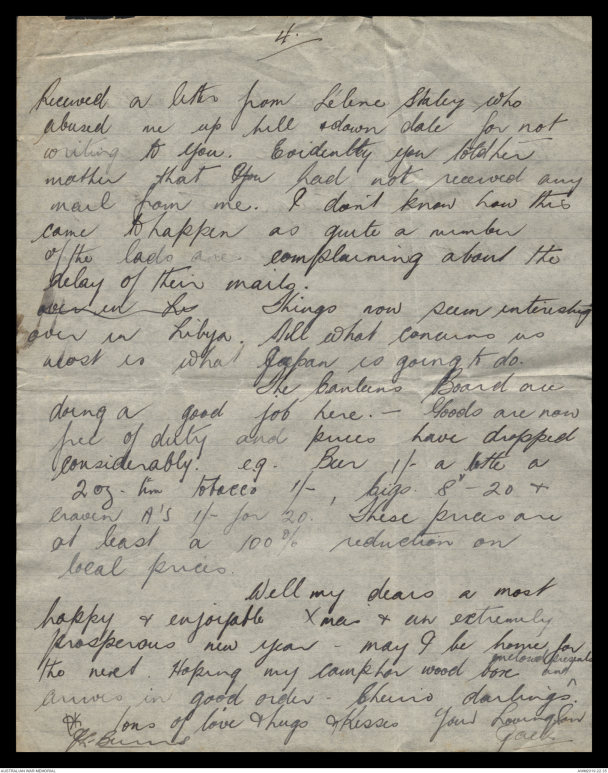 4.
Received a letter from Lélene Staley who
abused me up hill & down dale for not
writing to you. Evidently you told her
mother that you had not received any
mail from me. I don't know how this
came to happen as quite a number
of the lads are complaining about the
delay of their mails.
over in Li Things now seem interesting
over in Libya. Still what concerns us
most is what Japan is going to do.
The Canteens Board are
doing a good job here. - Goods are now
free of duty and prices have dropped
considerably. eg. Beer 1/- a bottle a
2 oz. tin tobacco 1/-, cigs. 8d - 20 &
craven A's 1/- for 20. These prices are
at least a 100% reduction on
local prices.
Well my dears a most
happy & enjoyable Xmas & an extremely
prosperous new year - may I be home for
the next. Hoping my camphor wood box and
presents
arrives in good order - Cheerio darlings.
tons of love & hugs & kisses Your Loving Son
Jack
AUSTRALIAN WAR MEMORIAL